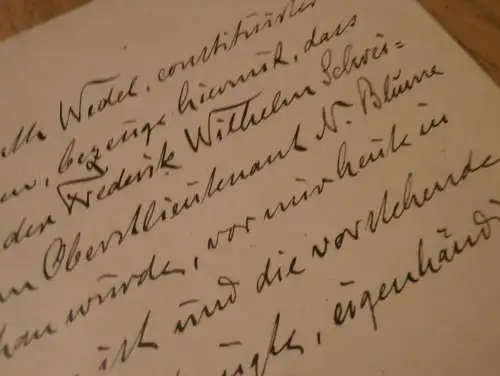 Wedel, constituirter
bezeuge hiermit, dass
den Frederik Wilhelm Schwei=
Oberstlieutenant N. Blume
würde, vor mir heute in
ist und die vorstehende
eigenhändi